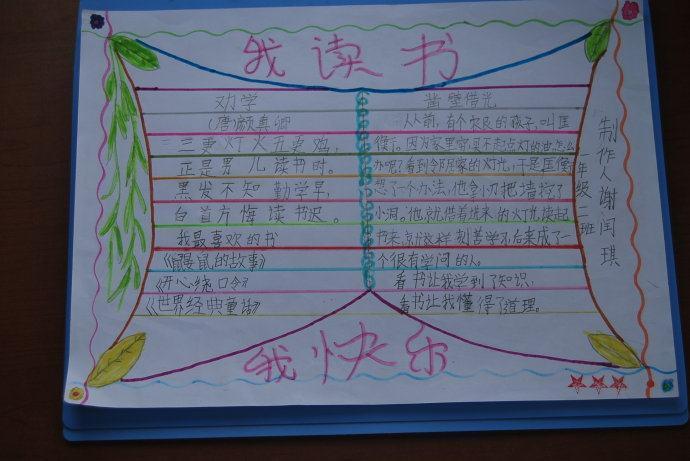 我读书
劝学
(唐)颜真卿
三更灯火五更鸡,
正是男儿读书时。
黑发不知勤学早,
白首方悔读书迟。
我最喜欢的书
《鼹鼠的故事》
《开心绕口令》
《世界经典童话》
凿壁借光
从前,有个农民的孩子,叫匡
衡。因为家里穷,买不起点灯的油,怎么
办呢?看到邻居家的灯光,于是匡衡
想了一个办法,他拿刀把墙挖了
小洞。他就借着进来的灯光读起
书来,就这样刻苦学习,后来成了一
个很有学问的人。
看书让我学到了知识,
看书让我懂得了道理。
年级二班
制作人谢闰琪
我快乐